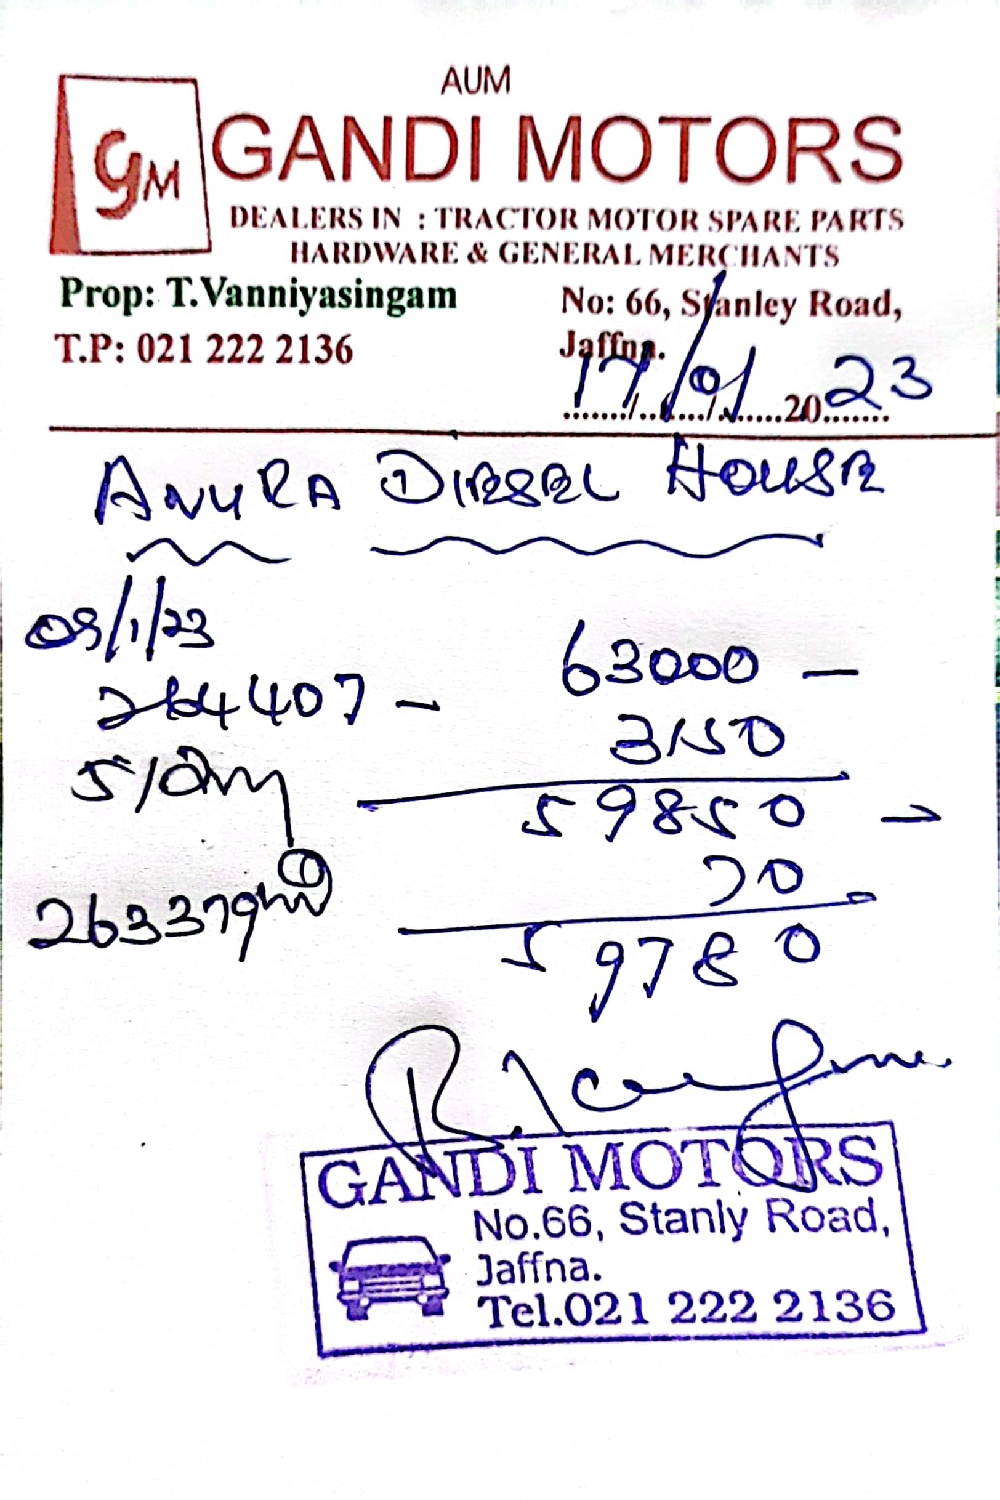 AUM
GM
GANDI MOTORS
DEALERS IN : TRACTOR MOTOR SPARE PARTS
HARDWARE & GENERAL MERCHANTS
Prop: T.Vanniyasingam
No: 66, Stanley Road,
T.P: 021 222 2136
Jaffna.
17/01/2023
ANURA DIESEL HOUSE
09/1/23
63000 —
264407 –
3150
59850
70
263379
59780
GANDI MOTORS
No.66, Stanly Road,
Jaffna.
Tel.021 222 2136